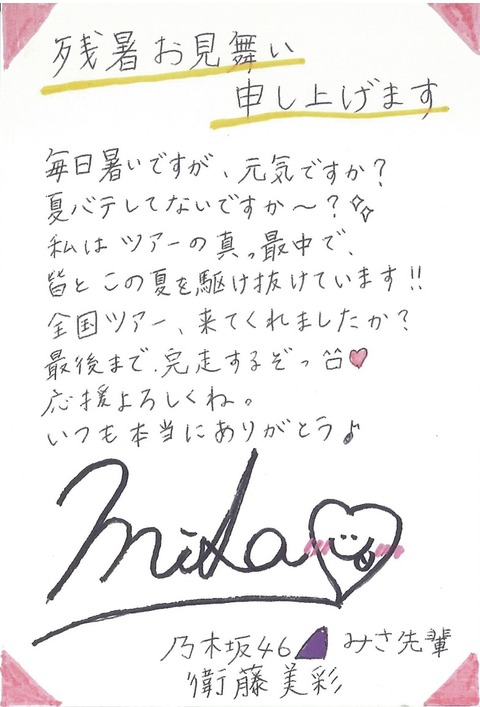 残暑お見舞い
申し上げます
毎日暑いですが、元気ですか?
夏バテしてないですか〜?
私はツアーの真っ最中で、
皆とこの夏を駆け抜けています!!
全国ツアー、来てくれましたか?
最後まで、完走するぞっ
応援よろしくね。
いつも本当にありがとう♪
misa
乃木坂46 みさ先輩
衛藤美彩